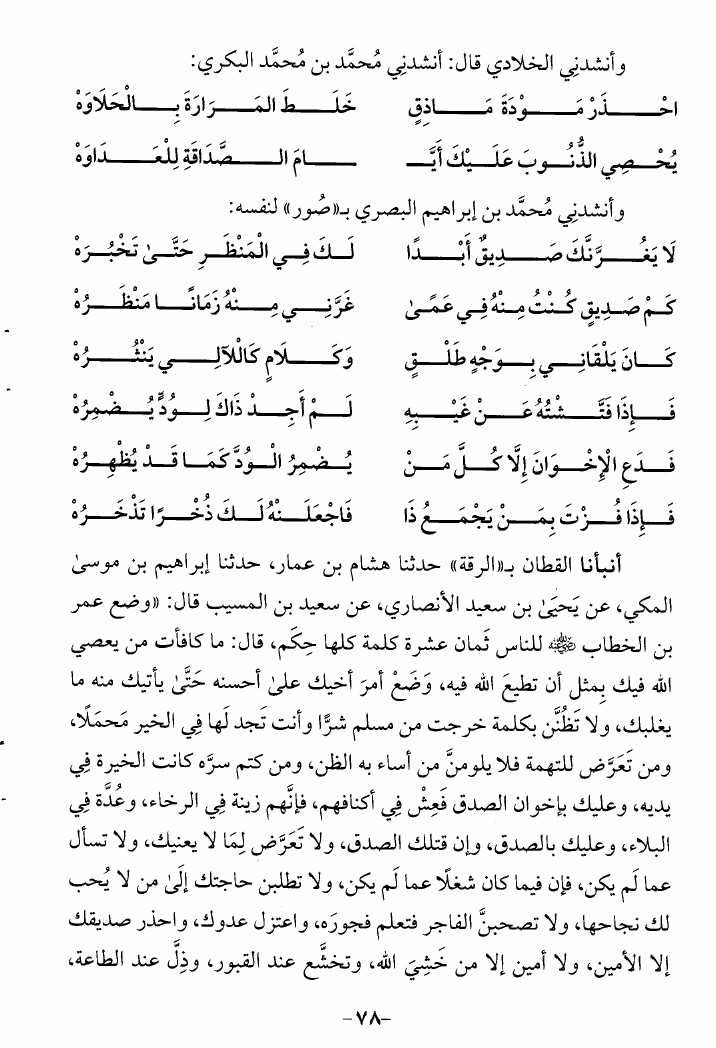 وأنشدنِي الخلادي قال: أنشدنِي مُحمَّد بن مُحمَّد البكري:
احْـــذَرْ مَـــوَدَةَ مَـــاذِقٍ خَلَـــطَ المَـــرَارَةَ بِـــالْحَلَاوَهْ
يُحْـــصِي الذُّنُـــوبَ عَلَـــيْكَ أَيَّـــ ـــامَ الـــصَّدَاقَةِ لِلْعَـــدَاوَهْ
وأنشدنِي مُحمَّد بن إبراهيم البصري بـ«صُور» لنفسه:
لَا يَغُـــرَّنَّكَ صَـــدِيقٌ أَبَـــدًا لَـــكَ فِـــي الْمَنْظَـــرِ حَتَّـــىٰ تَخْبُـــرَهْ
كَـــمْ صَـــدِيقٍ كُـــنْتُ مِـــنْهُ فِـــي عَمًـــىٰ غَرَّنِـــي مِـــنْهُ زَمَانًـــا مَنْظَـــرُهْ
كَـــانَ يَلْقَانِـــي بِـــوَجْهٍ طَلْـــقٍ وَكَـــلَامٍ كَاللآلِـــي يَنْثُـــرُهْ
فَـــإِذَا فَتَّـــشْتُهُ عَـــنْ غَيْـــبِهِ لَـــمْ أَجِـــدْ ذَاكَ لِـــوُدٍّ يُـــضْمِرُهْ
فَـــدَعِ الْإِخْـــوَانَ إِلَّا كُـــلَّ مَـــنْ يُـــضْمِرُ الْـــوُدَّ كَمَـــا قَـــدْ يُظْهِـــرُهْ
فَـــإِذَا فُـــزْتَ بِمَـــنْ يَجْمَـــعُ ذَا فَاجْعَلَـــنْهُ لَـــكَ ذُخْـــرًا تَذْخَـــرُهْ
أنبأنا القطان بـ«الرقة» حدثنا هشام بن عمار، حدثنا إبراهيم بن موسىٰ
المكي، عن يَحيَىٰ بن سعيد الأنصاري، عن سعيد بن المسيب قال: «وضع عمر
بن الخطاب ﷺ للناس ثَمان عشرة كلمة كلها حِكَم، قال: ما كافأت من يعصي
الله فيك بِمثل أن تطيعَ الله فيه، وَضَعْ أمرَ أخيك علىٰ أحسنه حَتَّىٰ يأتيك منه ما
يغلبك، ولا تَظُنَّن بكلمة خرجت من مسلم شرًّا وأنت تَجد لَها فِي الخير مَحمَلًا،
ومن تَعَرَّض للتهمة فلا يلومنَّ من أساء به الظن، ومن كتم سرَّه كانت الخيرة فِي
يديه، وعليك بإخوان الصدق فَعِشْ فِي أكنافهم، فإنَّهم زينة فِي الرخاء، وعُدَّة فِي
البلاء، وعليك بالصدق، وإن قتلك الصدق، ولا تَعَرَّض لِمَا لا يعنيك، ولا تسأل
عما لَم يكن، فإن فيما كان شغلًا عما لَم يكن، ولا تطلبن حاجتك إلَىٰ من لا يُحب
لك نجاحها، ولا تصحبنَّ الفاجر فتعلم فجورَه، واعتزل عدوك، واحذر صديقك
إلا الأمين، ولا أمين إلا من خَشِيَ الله، وتخشَّع عند القبور، وذِلَّ عند الطاعة،
-٧٨-